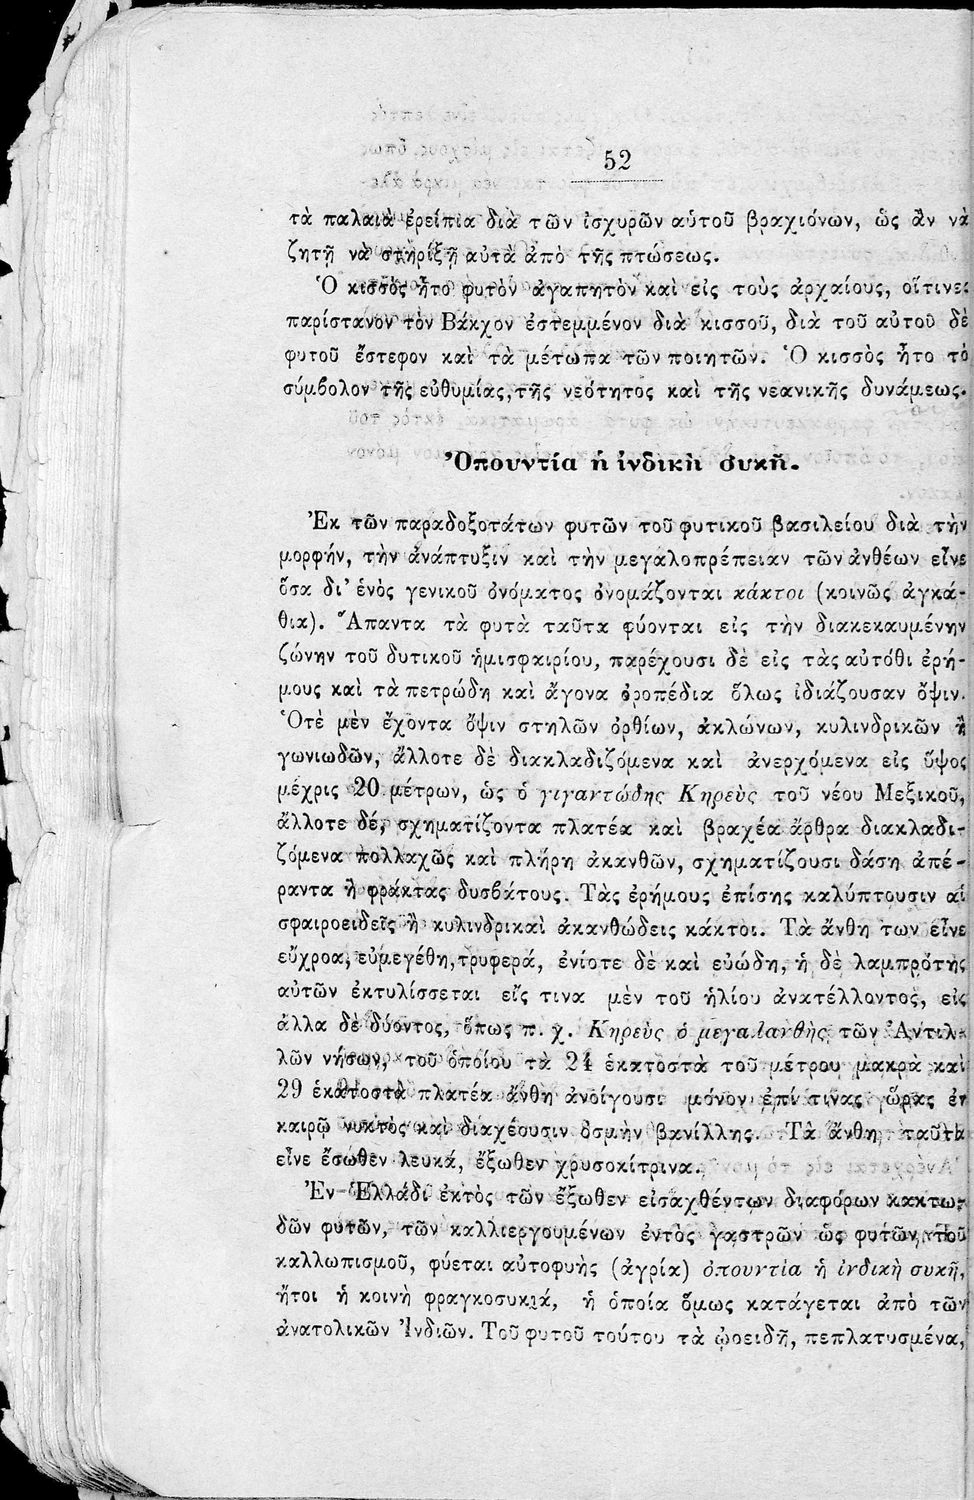 52
τὰ παλαιὰ ἐρείπια διὰ τῶν ἰσχυρῶν αὑτοῦ βραχιόνων, ὡς ἂν νὰ
ζητῇ νὰ στηρίξῃ αὐτὰ ἀπὸ τῆς πτώσεως.
Ὁ κισσὸς ἦτο φυτὸν ἀγαπητὸν καὶ εἰς τοὺς ἀρχαίους, οἵτινες
παρίστανον τὸν Βάκχον ἐστεμμένον διὰ κισσοῦ, διὰ τοῦ αὐτοῦ δὲ
φυτοῦ ἔστεφον καὶ τὰ μέτωπα τῶν ποιητῶν. Ὁ κισσὸς ἦτο τὸ
σύμβολον τῆς εὐθυμίας, τῆς νεότητος καὶ τῆς νεανικῆς δυνάμεως.
Ὀπουντία ἡ ἰνδικὴ συκῆ.
Ἐκ τῶν παραδοξοτάτων φυτῶν τοῦ φυτικοῦ βασιλείου διὰ τὴν
μορφήν, τὴν ἀνάπτυξιν καὶ τὴν μεγαλοπρέπειαν τῶν ἀνθέων εἶνε
ὅσα δι' ἑνὸς γενικοῦ ὀνόματος ὀνομάζονται κάκτοι (κοινῶς ἀγκά-
θια). Ἅπαντα τὰ φυτὰ ταῦτα φύονται εἰς τὴν διακεκαυμένην
ζώνην τοῦ δυτικοῦ ἡμισφαιρίου, παρέχουσι δὲ εἰς τὰς αὐτόθι ἐρή-
μους καὶ τὰ πετρώδη καὶ ἄγονα ὀροπέδια ὅλως ἰδιάζουσαν ὄψιν.
Ὁτὲ μὲν ἔχοντα ὄψιν στηλῶν ὀρθίων, ἀκλώνων, κυλινδρικῶν ἢ
γωνιωδῶν, ἄλλοτε δὲ διακλαδιζόμενα καὶ ἀνερχόμενα εἰς ὕψος
μέχρις 20 μέτρων, ὡς ὁ γιγαντώδης Κηρεὺς τοῦ νέου Μεξικοῦ,
ἄλλοτε δέ, σχηματίζοντα πλατέα καὶ βραχέα ἄρθρα διακλαδι-
ζόμενα πολλαχῶς καὶ πλήρη ἀκανθῶν, σχηματίζουσι δάση ἀπέ-
ραντα ἢ φράκτας δυσβάτους. Τὰς ἐρήμους ἐπίσης καλύπτουσιν αἱ
σφαιροειδεῖς ἢ κυλινδρικαὶ ἀκανθώδεις κάκτοι. Τὰ ἄνθη των εἶνε
εὔχροα, εὐμεγέθη, τρυφερά, ἐνίοτε δὲ καὶ εὐώδη, ἡ δὲ λαμπρότης
αὐτῶν ἐκτυλίσσεται εἴς τινα μὲν τοῦ ἡλίου ἀνατέλλοντος, εἰς
ἄλλα δὲ δύοντος, ὅπως π. χ. Κηρεὺς ὁ μεγαλανθὴς τῶν Ἀντιλ-
λῶν νήσων, τοῦ ὁποίου τὰ 24 ἑκατοστὰ τοῦ μέτρου μακρὰ καὶ
29 ἑκατοστὰ πλατέα ἄνθη ἀνοίγουσι μόνον ἐπί τινας ὥρας ἐν
καιρῷ νυκτὸς καὶ διαχέουσιν ὀσμὴν βανίλλης. Τὰ ἄνθη ταῦτα
εἶνε ἔσωθεν λευκά, ἔξωθεν χρυσοκίτρινα.
Ἐν Ἑλλάδι ἐκτὸς τῶν ἔξωθεν εἰσαχθέντων διαφόρων κακτω-
δῶν φυτῶν, τῶν καλλιεργουμένων ἐντὸς γαστρῶν ὡς φυτῶν τοῦ
καλλωπισμοῦ, φύεται αὐτοφυὴς (ἀγρία) ὀπουντία ἡ ἰνδικὴ συκῆ,
ἤτοι ἡ κοινὴ φραγκοσυκιά, ἡ ὁποία ὅμως κατάγεται ἀπὸ τῶν
ἀνατολικῶν Ἰνδιῶν. Τοῦ φυτοῦ τούτου τὰ ᾠοειδῆ, πεπλατυσμένα,